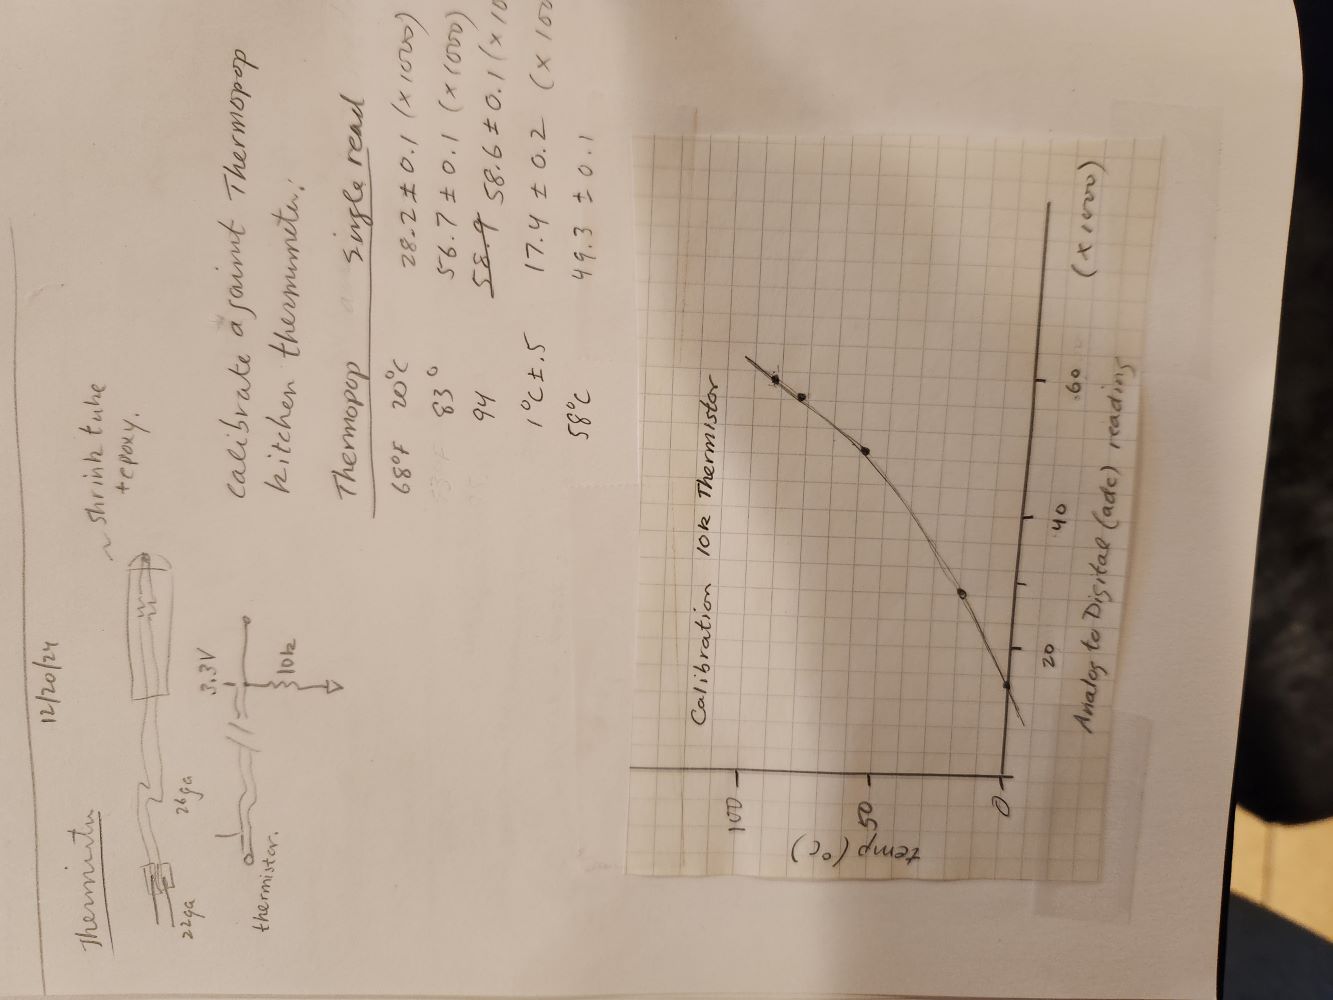 12/20/24
Thermistor
shrink tube
+ epoxy.
22ga
26ga
3.3V
thermistor.
10k
Calibrate against Thermopop
kitchen thermometer:
Thermopop Single read
68°F 20°C 28.2 ± 0.1 (x 1000)
83° 56.7 ± 0.1 (x 1000)
94 58.9 58.6 ± 0.1 (x 10
1°C ± .5 17.4 ± 0.2 (x 100
58°C 49.3 ± 0.1
Calibration 10k Thermistor
100
50
0
temp (°C)
20 40 60 (x 1000)
Analog to Digital (adc) reading